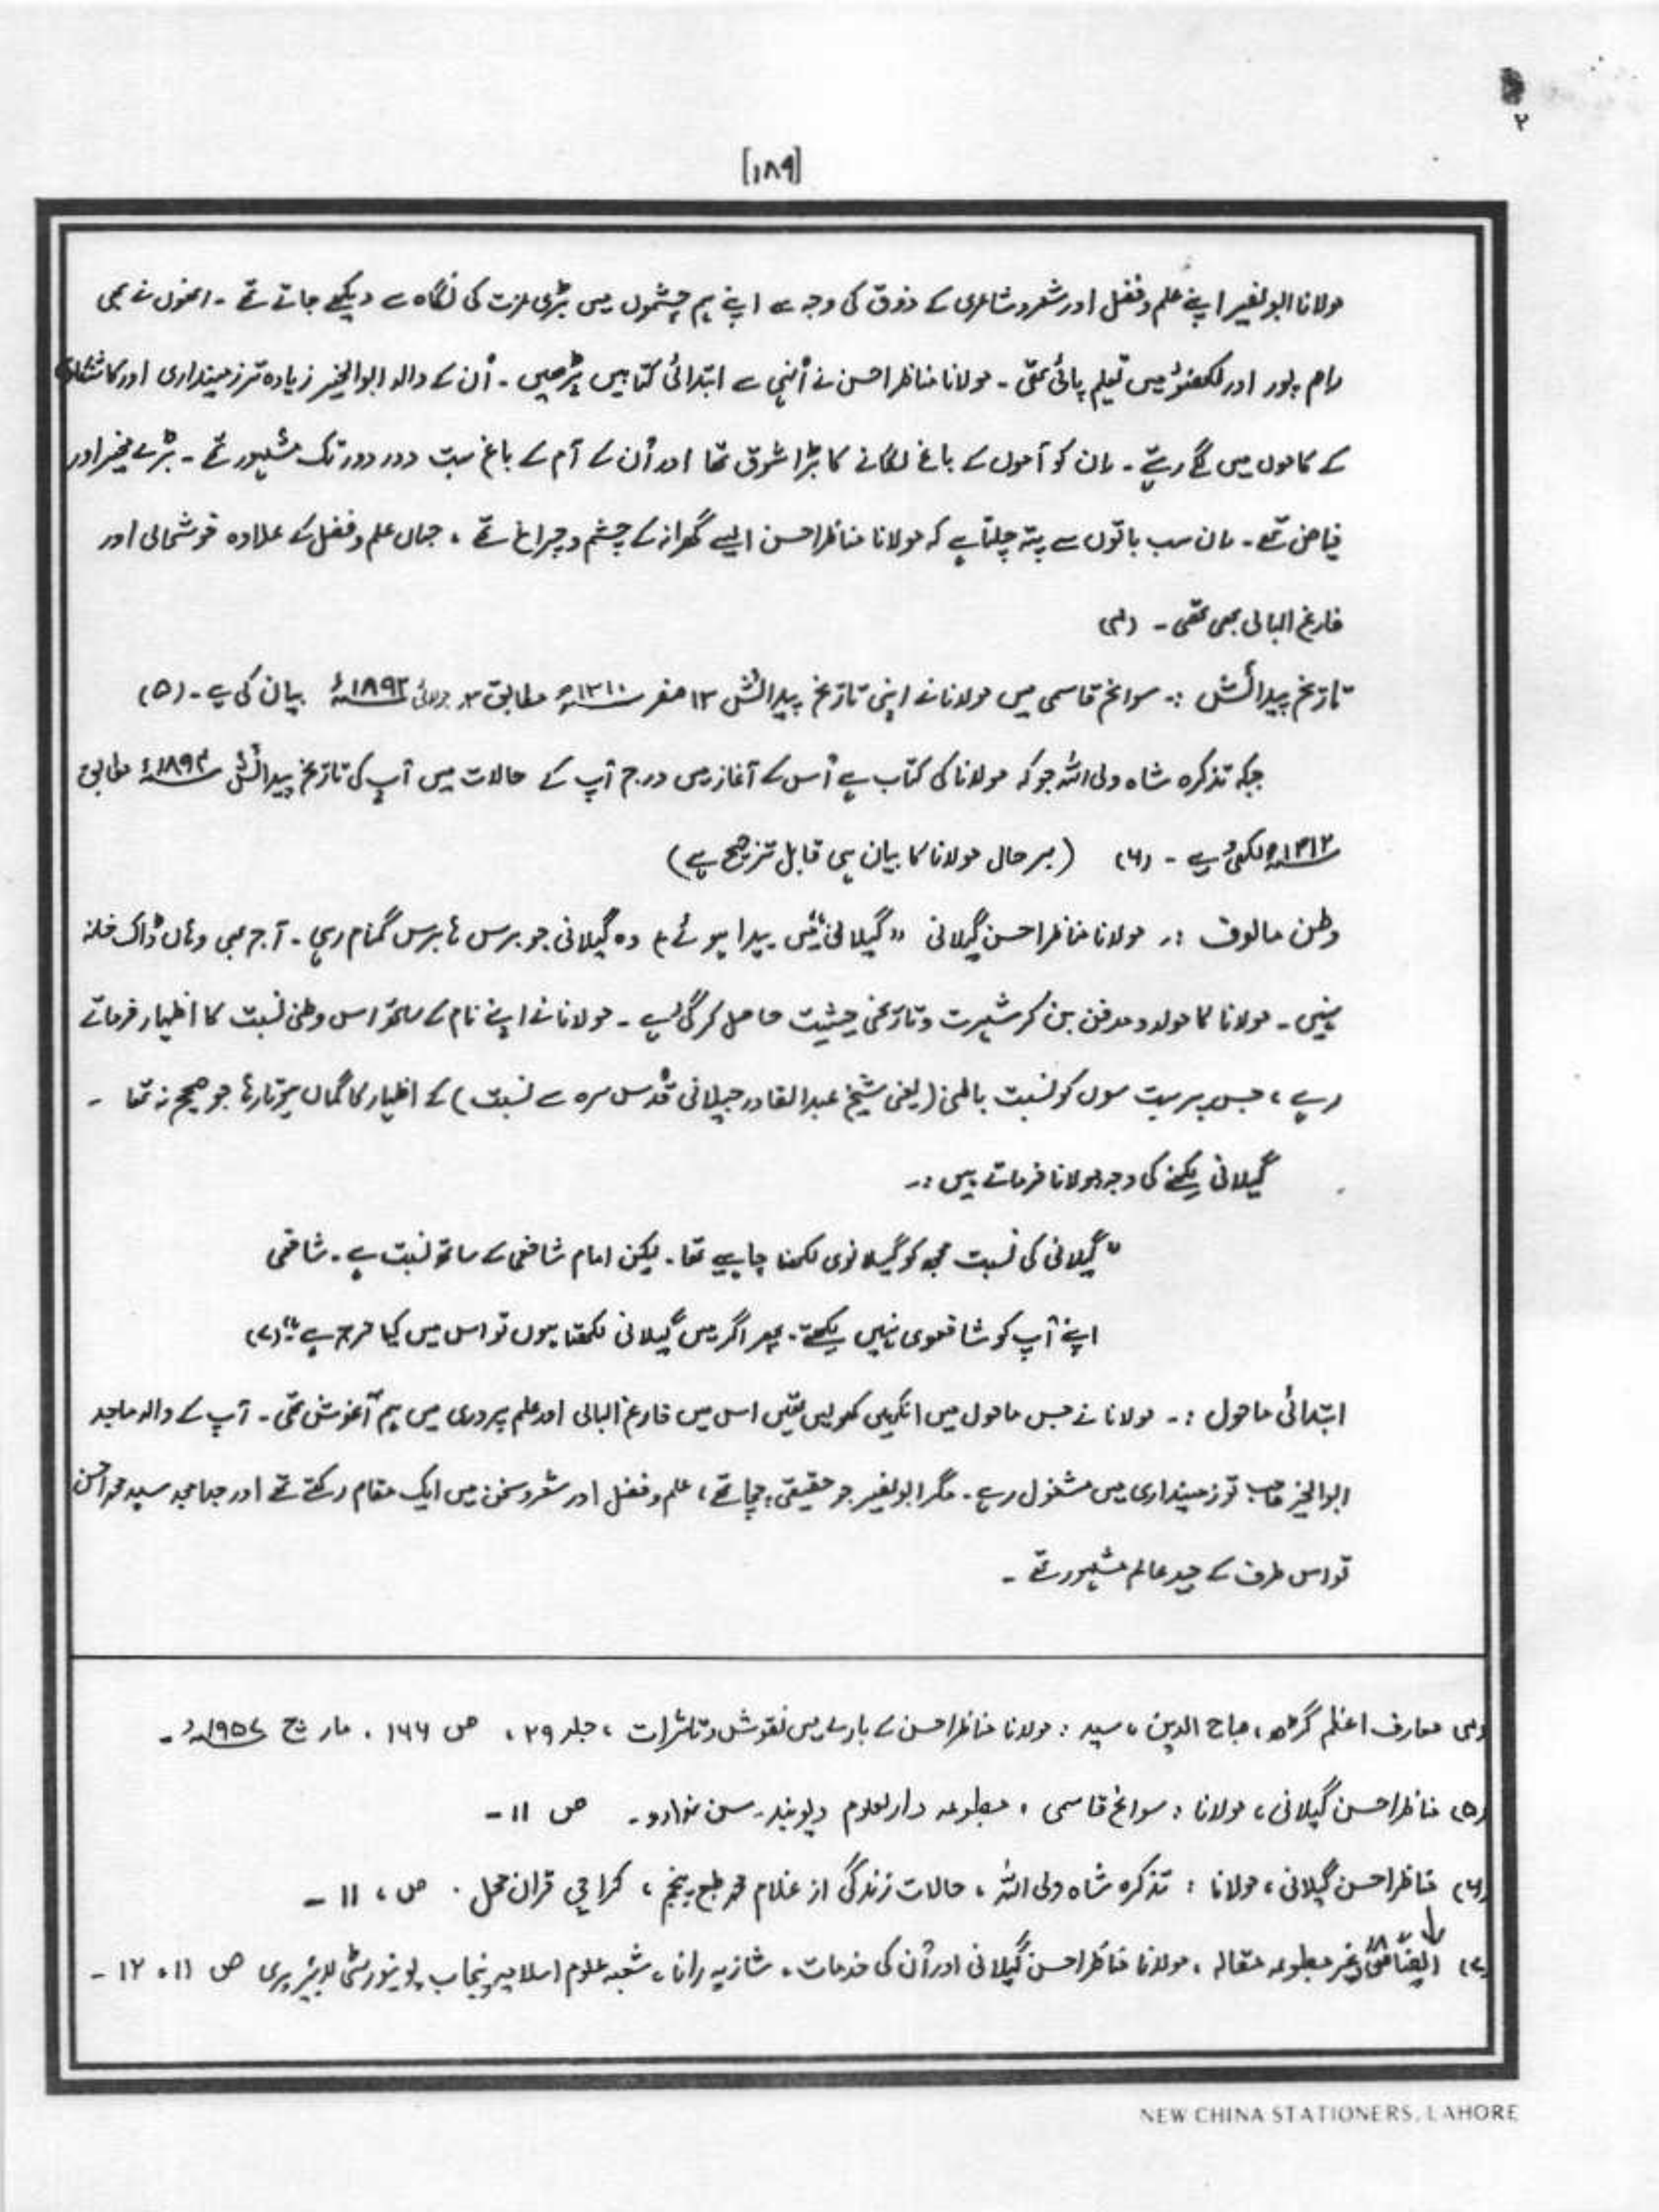 ۲
[۱۸۹]
مولانا ابو نصیر اپنے علم و فضل اور شعر و شاعری کے ذوق کی وجہ سے اپنے ہم چشموں میں بڑی عزت کی نگاہ سے دیکھے جاتے تھے ۔ انھوں نے بھی
رام پور اور لکھنؤ میں تعلیم پائی تھی ۔ مولانا مناظر احسن نے اُنہی سے ابتدائی کتابیں پڑھیں ۔ اُن کے والد ابو الخیر زیادہ تر زمینداری اور کاشتکاری
کے کاموں میں لگے رہتے ۔ ان کو آموں کے باغ لگانے کا بڑا شوق تھا اور اُن کے آم کے باغ بہت دور دور تک مشہور تھے ۔ بڑے مخیر اور
فیاض تھے ۔ ان سب باتوں سے پتہ چلتا ہے کہ مولانا مناظر احسن ایسے گھرانہ کے چشم و چراغ تھے ، جہاں علم و فضل کے علاوہ خوشحالی اور
فارغ البالی بھی تھی ۔ (۴)
تاریخ پیدائش :۔ سوانح قاسمی میں مولانا نے اپنی تاریخ پیدائش ۱۳ صفر ۱۳۱۰ھ مطابق جولائی ۱۸۹۲ء بیان کی ہے ۔ (۵)
جبکہ تذکرہ شاہ ولی اللہ جو کہ مولانا کی کتاب ہے اُس کے آغاز میں درج آپ کے حالات میں آپ کی تاریخ پیدائش ۱۸۹۴ء مطابق
۱۳۱۲ھ لکھی ہے ۔ (۶) (بہر حال مولانا کا بیان ہی قابل ترجیح ہے)
وطن مالوف :۔ مولانا مناظر احسن گیلانی "گیلانی" میں پیدا ہوئے ، وہ گیلانی جو برس ہا برس گمنام رہی ۔ آج بھی وہاں ڈاک خانہ
نہیں ۔ مولانا کا مولد و مدفن بن کر شہرت و تاریخی حیثیت حاصل کر گئی ہے ۔ مولانا نے اپنے نام کے ساتھ اس وطنی نسبت کا اظہار فرماتے
رہے ، جس پر بہت سوں کو نسبت باطنی (یعنی شیخ عبدالقادر جیلانی قدس سرہ سے نسبت) کے اظہار کا گماں ہوتا رہا جو صحیح نہ تھا ۔
گیلانی لکھنے کی وجہ مولانا فرماتے ہیں :۔
"گیلانی کی نسبت مجھ کو گیلانوی لکھنا چاہیے تھا ۔ لیکن امام شافعی کے ساتھ نسبت ہے ۔ شافعی
اپنے آپ کو شافعوی نہیں لکھتے ۔ پھر اگر میں گیلانی لکھتا ہوں تو اس میں کیا حرج ہے" (۷)
ابتدائی ماحول :۔ مولانا نے جس ماحول میں انکھیں کھولیں تھیں اس میں فارغ البالی اور علم پروری میں ہم آغوش تھی ۔ آپ کے والد ماجد
ابوالخیر صاحب تو زمینداری میں مشغول رہے ۔ مگر ابو نصیر جو حقیقی چچا تھے ، علم و فضل اور شعر و سخن میں ایک مقام رکھتے تھے اور جدامجد سید محمد احسن
تو اس طرف کے جید عالم مشہور تھے ۔
(۴) معارف اعظم گڑھ ، صباح الدین ، سید : مولانا مناظر احسن کے بارے میں نقوش و تاثرات ، جلد ۲۹ ، ص ۱۶۶ ، مارچ ۱۹۵۷ء ۔
(۵) مناظر احسن گیلانی ، مولانا : سوانح قاسمی ، مطبوعہ دارالعلوم دیوبند ۔ سن ندارد ۔ ص ۱۱ ۔
(۶) مناظر احسن گیلانی ، مولانا : تذکرہ شاہ ولی اللہ ، حالات زندگی از غلام محمد طبع پنجم ، کراچی قران محل ۔ ص ، ۱۱ ۔
(۷) ایضاً غیر مطبوعہ مقالہ ، مولانا مناظر احسن گیلانی اور اُن کی خدمات ، شازیہ رانا ، شعبہ علوم اسلامیہ پنجاب یونیورسٹی لائبریری ص ۱۱ ، ۱۲ ۔
NEW CHINA STATIONERS, LAHORE